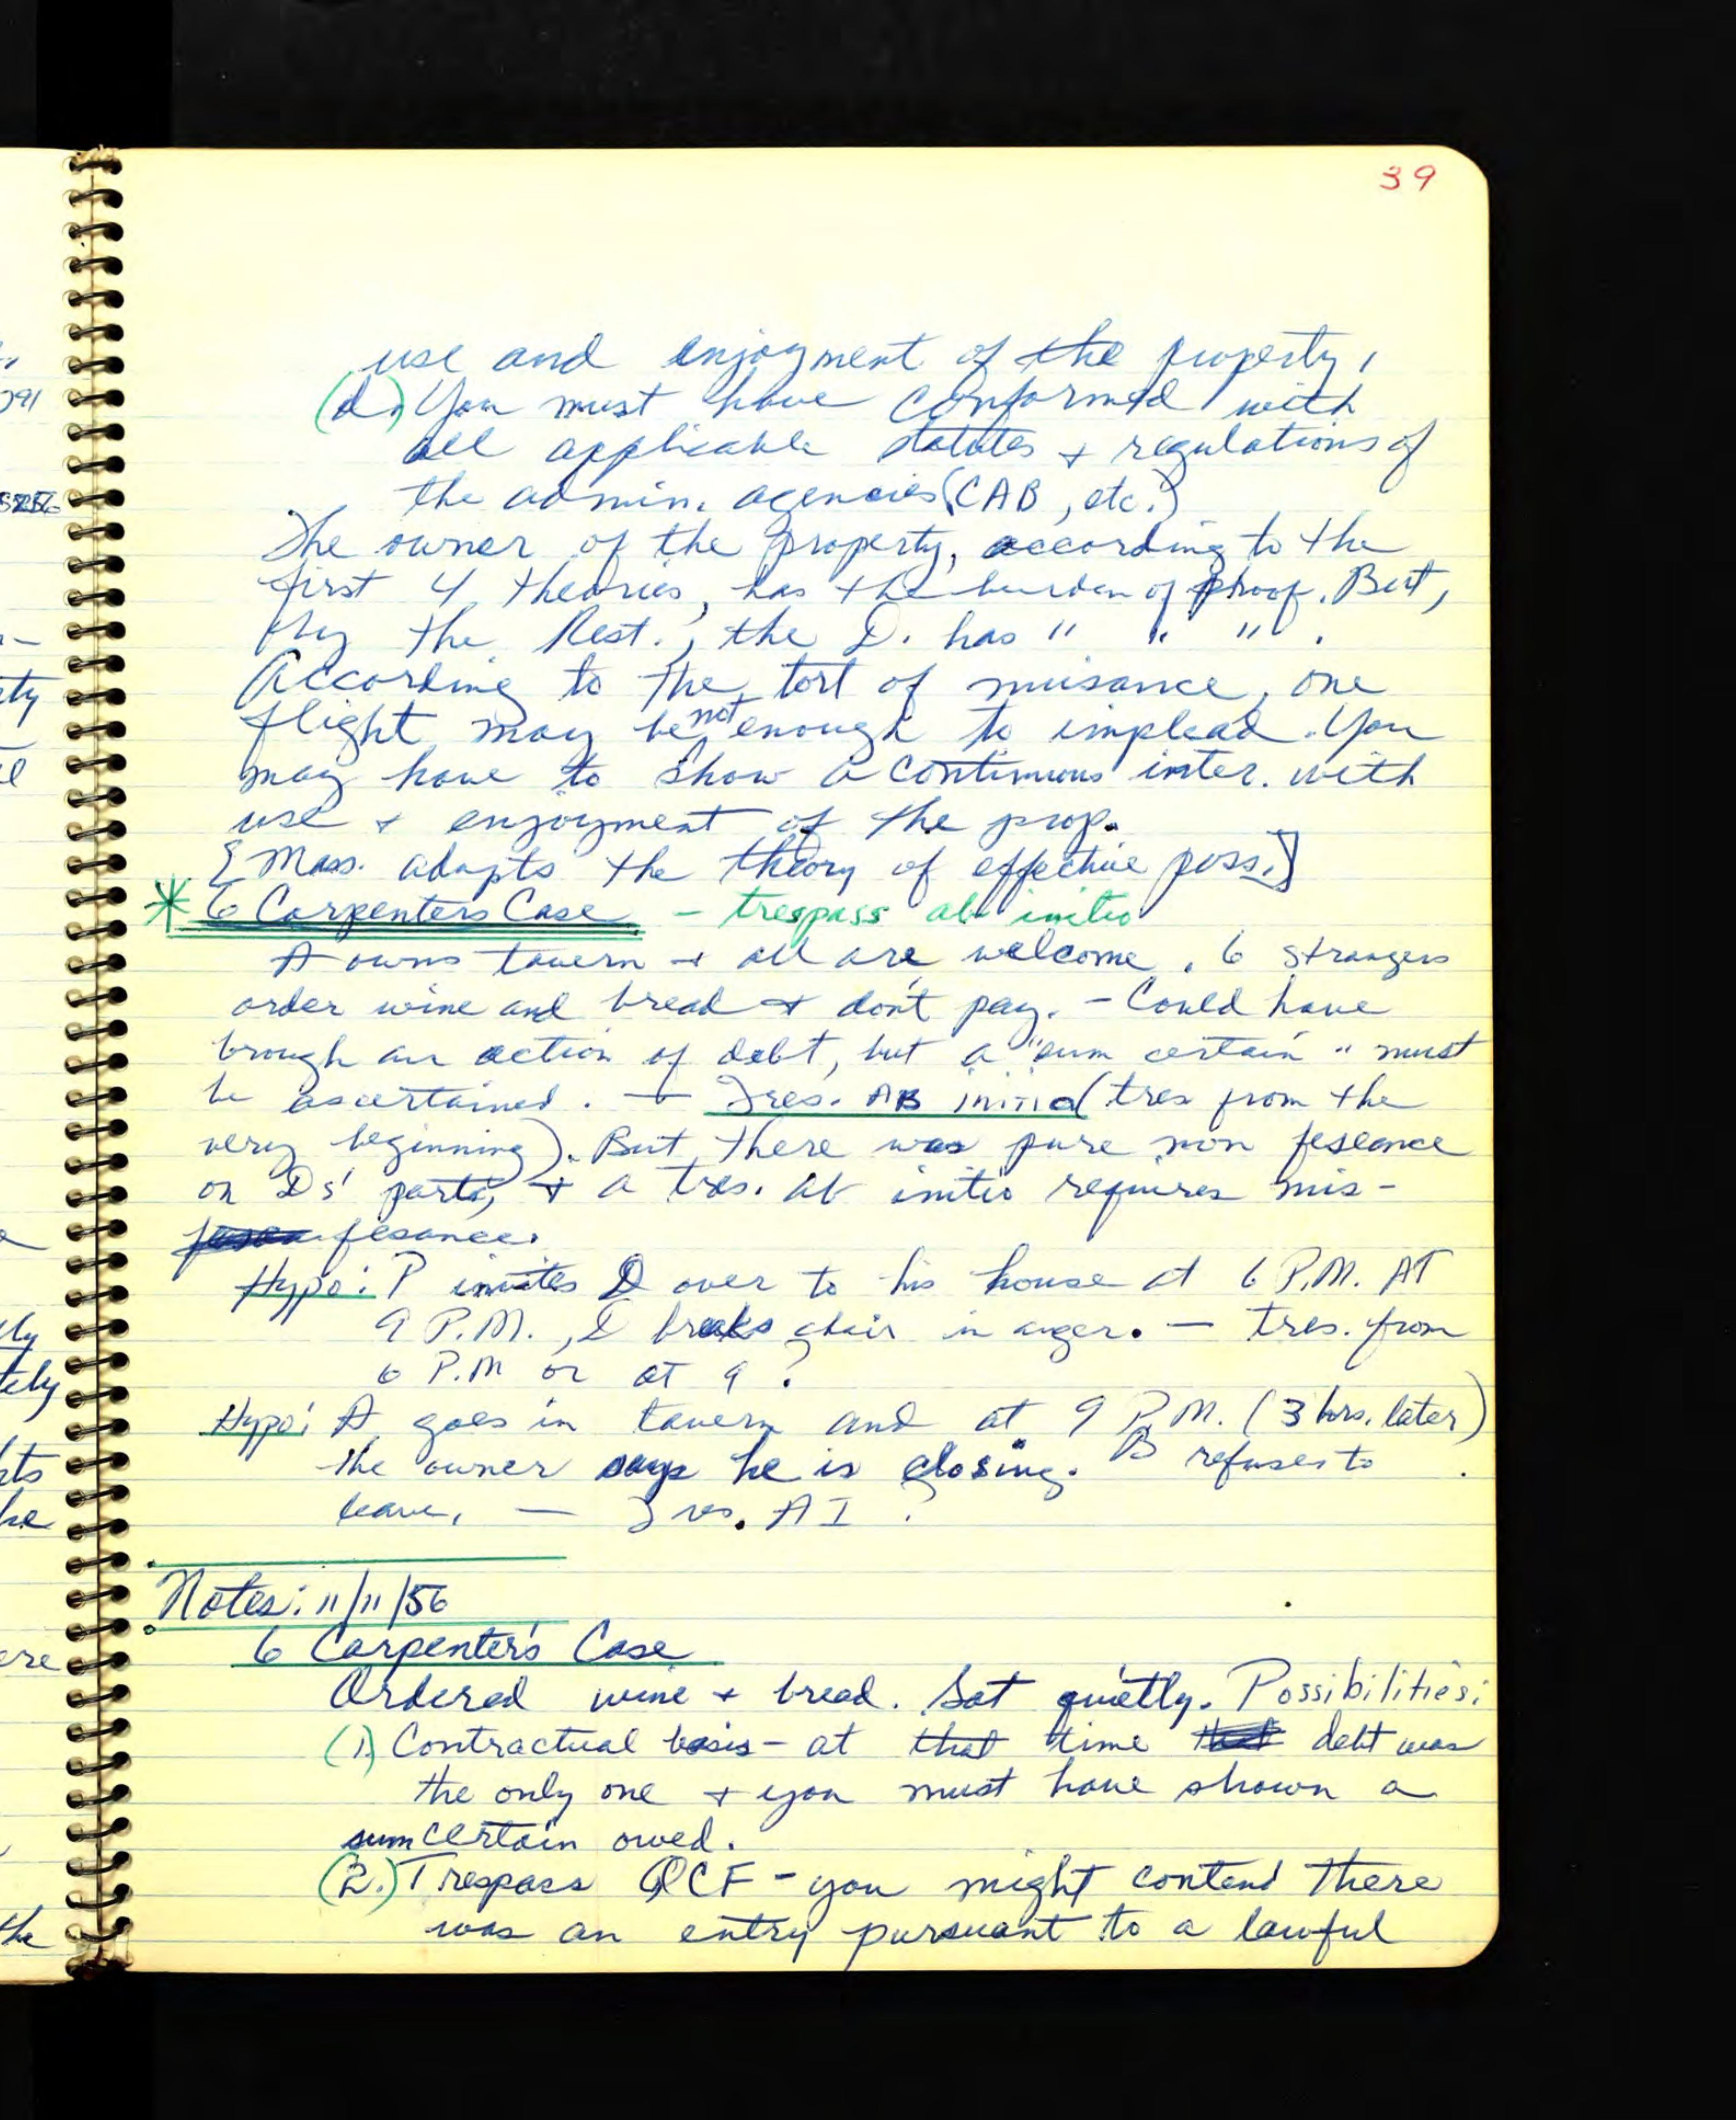 39
use and enjoyment of the property,
(d.) You must have conformed with
all applicable statutes + regulations of
the admin. agencies (CAB, etc.)
The owner of the property, according to the
first 4 theories, has the burden of proof. But,
by the Rest., the D. has " " " .
According to the tort of nuisance, one
flight may be not enough to implead. You
may have to show a continuous inter. with
use + enjoyment of the prop.
[Mass. adopts the theory of effective poss.]
* 6 Carpenters Case - trespass ab initio
A owns tavern + all are welcome. 6 strangers
order wine and bread + don't pay. - Could have
brough an action of debt, but a "sum certain" must
be ascertained. - Tres. AB initio (tres from the
very beginning). But there was pure non feseance
on Ds' parts, + a tres. ab initio requires mis-
fesance.
Hypo: P invites D over to his house at 6 P.M. AT
9 P.M., D breaks chair in anger. - tres. from
6 P.M or at 9?
Hypo: A goes in tavern and at 9 P.M. (3 hrs. later)
the owner says he is closing. B refuses to
leave, - Tres. AI ?
Notes: 11/11/56
6 Carpenter's Case
Ordered wine + bread. Sat quietly. Possibilities:
(1) Contractual basis - at that time debt was
the only one + you must have shown a
sum certain owed.
(2.) Trespass QCF - you might contend there
was an entry pursuant to a lawful